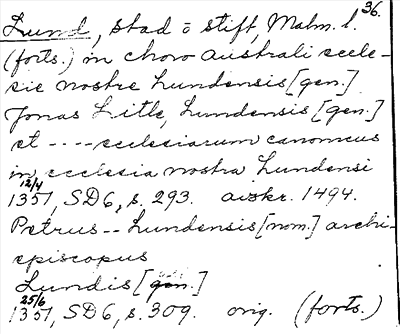 36.
Lund, stad o stift, Malm. l.
(forts.) in choro australi eccle-
sie nostre Lundensis [gen.]
Jonas Litle, Lundensis [gen.]
et ---- ecclesiarum canonicus
in ecclesia nostra Lundensi
12/4
1351, SD6, s. 293. avskr. 1494.
Petrus -- Lundensis [nom.] archi-
episcopus
Lundis [gen.]
25/6
1351, SD6, s. 309. orig. (forts.)